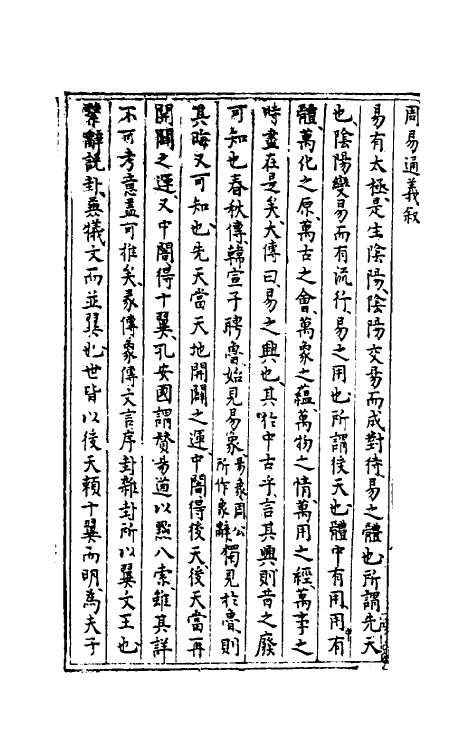 周易通義叙
易有太極是生陰陽陰陽交易而成對待易之體也所謂先天
也陰陽變易而有流行易之用也所謂後天也體中有用用有
體萬化之原萬古之會萬象之蘊萬物之情萬用之經萬事之
時盡在是矣大傳曰易之興也其於中古乎言其興則昔之廢
可知也春秋傳韓宣子聘魯始見易象易象周公所作象辭獨見於魯則
其晦又可知也先天當天地開闢之運中闇得後天後天當再
開闢之運又中闇得十翼孔安國謂賛易道以黜八索雖其詳
不可考意蓋可推矣彖傳象傳文言序卦雜卦所以翼文王也
繫辭說卦兼犧文而並翼也世皆以後天賴十翼而明為夫子